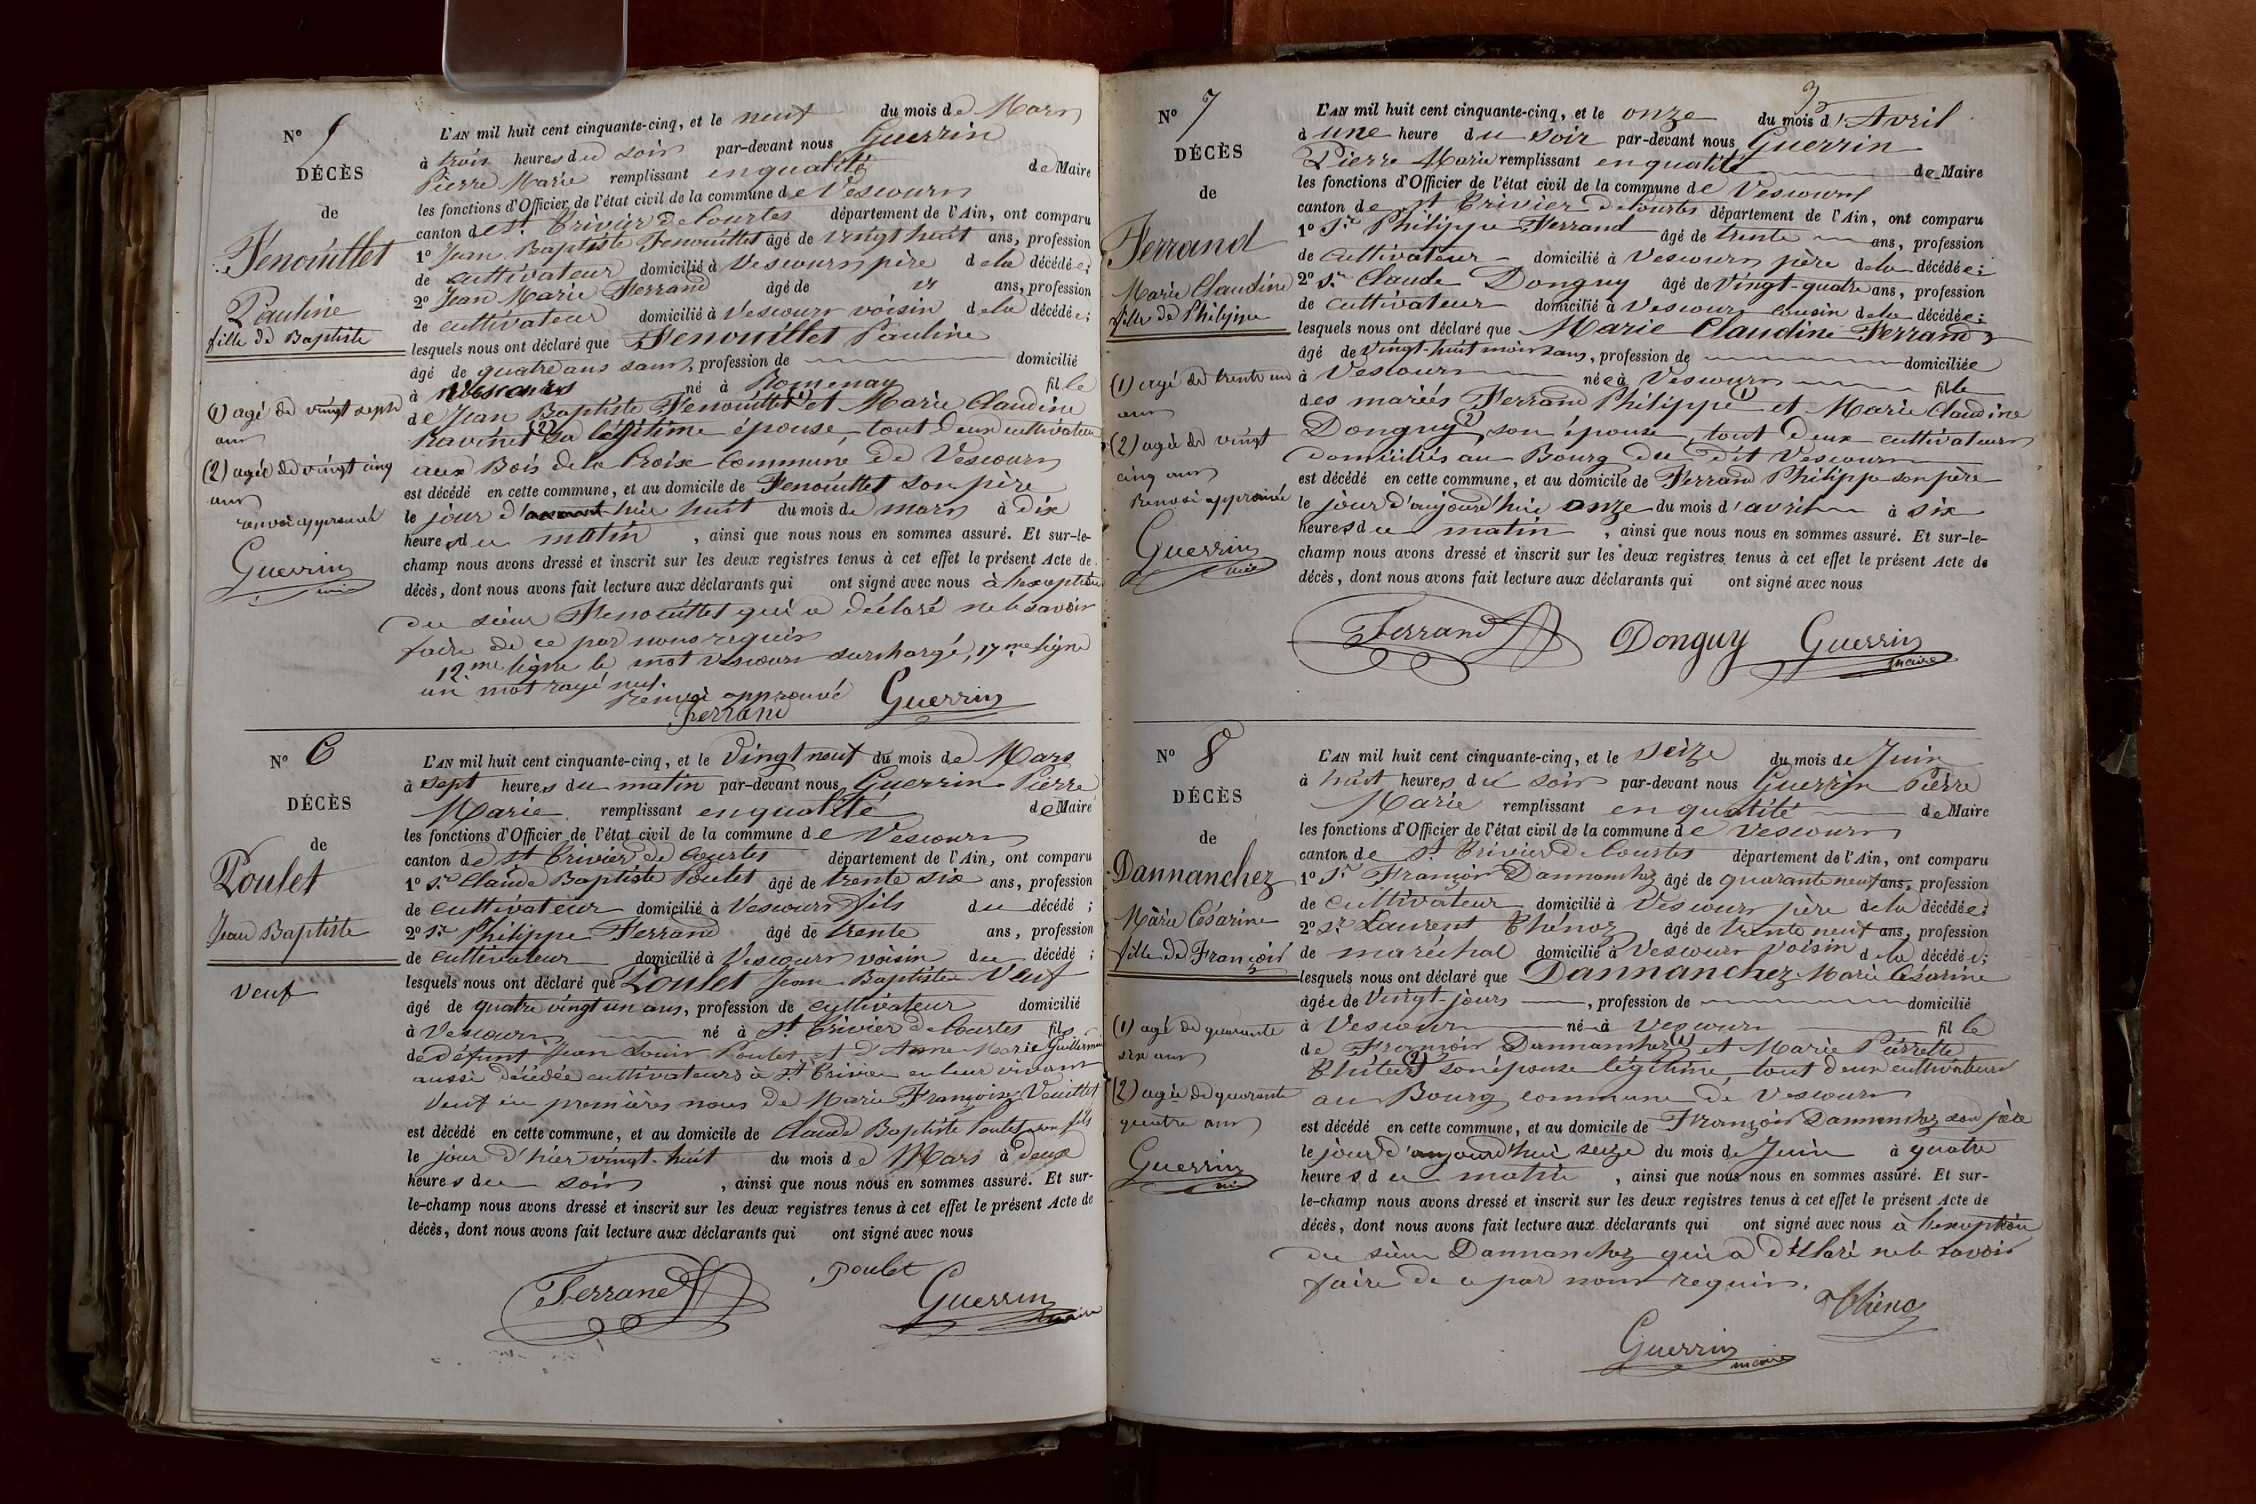 N° 5
DÉCÈS
de
Fenouillet
Pauline
fille de Baptiste
(1) agé de vingt sept
ans
(2) agée de vingt cinq
ans
renvoi approuvé
Guerrin
L'AN mil huit cent cinquante-cinq, et le neuf du mois de Mars
à trois heures du soir par-devant nous Guerrin
Pierre Marie remplissant en qualité de Maire
les fonctions d'Officier de l'état civil de la commune de Vescours
canton de St. Trivier de Courtes département de l'Ain, ont comparu
1° Jean Baptiste Fenouillet âgé de vingt huit ans, profession
de cultivateur domicilié à Vescours père de la décédée;
2° Jean Marie Ferrand âgé de ans, profession
de cultivateur domicilié à Vescours voisin de la décédée;
lesquels nous ont déclaré que Fenouillet Pauline
âgé de quatre ans sans, profession de domicilié
à Vescours né à Romenay fille
de Jean Baptiste Fenouillet (1) et Marie Claudine
Ravinet (2) sa légitime épouse, tout deux cultivateurs
aux Bois de la Croix commune de Vescours
est décédé en cette commune, et au domicile de Fenouillet son père
le jour d' hier huit du mois de mars à dix
heures du matin, ainsi que nous nous en sommes assuré. Et sur-le-
champ nous avons dressé et inscrit sur les deux registres tenus à cet effet le présent Acte de
décès, dont nous avons fait lecture aux déclarants qui ont signé avec nous à l'exception
du sieur Fenouillet qui a déclaré ne le savoir
faire de ce par nous requis
12me ligne le mot vescours surchargé, 17me ligne
un mot rayé nul.
Renvoi approuvé
Ferrand Guerrin
N° 6
DÉCÈS
de
Poulet
Jean Baptiste
Veuf
L'AN mil huit cent cinquante-cinq, et le vingt neuf du mois de Mars
à sept heures du matin par-devant nous Guerrin Pierre
Marie remplissant en qualité de Maire
les fonctions d'Officier de l'état civil de la commune de Vescours
canton de St. Trivier de Courtes département de l'Ain, ont comparu
1° Sr. Claude Baptiste Poulet âgé de trente six ans, profession
de cultivateur domicilié à Vescours fils du décédé ;
2° Sr. Philippe Ferrand âgé de trente ans, profession
de cultivateur domicilié à Vescours voisin du décédé ;
lesquels nous ont déclaré que Poulet Jean Baptiste Veuf
âgé de quatre vingt un ans, profession de cultivateur domicilié
à Vescours né à St. Trivier de Courtes fils
de défunt Jean Louis Poulet et d'Anne Marie
aussi décédée cultivateurs à St. Trivier en leur vivant
Veuf en premières noces de Marie Françoise Veuillet
est décédé en cette commune, et au domicile de Claude Baptiste Poulet son fils
le jour d'hier vingt-huit du mois de Mars à deux
heures du soir, ainsi que nous nous en sommes assuré. Et sur-
le-champ nous avons dressé et inscrit sur les deux registres tenus à cet effet le présent Acte de
décès, dont nous avons fait lecture aux déclarants qui ont signé avec nous
Ferrand Poulet Guerrin
maire
3
N° 7
DÉCÈS
de
Ferrand
Marie Claudine
fille de Philippe
(1) agé de trente un
ans
(2) agée de vingt
cinq ans
Renvoi approuvé
Guerrin
maire
L'AN mil huit cent cinquante-cinq, et le onze du mois d'Avril
à une heure du soir par-devant nous Guerrin
Pierre Marie remplissant en qualité de Maire
les fonctions d'Officier de l'état civil de la commune de Vescours
canton de St Trivier de Courtes département de l'Ain, ont comparu
1° Sr. Philippe Ferrand âgé de trente ans, profession
de cultivateur domicilié à Vescours père de la décédée;
2° Sr. Claude Donguy âgé de vingt-quatre ans, profession
de cultivateur domicilié à Vescours cousin de la décédée;
lesquels nous ont déclaré que Marie Claudine Ferrand
âgé de vingt-huit mois ans, profession de domiciliée
à Vescours née à Vescours fille
des mariés Ferrand Philippe (1) et Marie Claudine
Donguy (2), son épouse, tout deux cultivateurs
domiciliés au Bourg du dit Vescours
est décédé en cette commune, et au domicile de Ferrand Philippe son père
le jour d'aujourd'hui onze du mois d'avril à six
heures du matin, ainsi que nous nous en sommes assuré. Et sur-le-
champ nous avons dressé et inscrit sur les deux registres tenus à cet effet le présent Acte de
décès, dont nous avons fait lecture aux déclarants qui ont signé avec nous
Ferrand Donguy Guerrin
maire
N° 8
DÉCÈS
de
Dannanchez
Marie Césarine
fille de François
(1) agé de quarante
six ans
(2) agée de quarante
quatre ans
Guerrin
L'AN mil huit cent cinquante-cinq, et le seize du mois de Juin
à huit heures du soir par-devant nous Guerrin Pierre
Marie remplissant en qualité de Maire
les fonctions d'Officier de l'état civil de la commune de Vescours
canton de St Trivier de Courtes département de l'Ain, ont comparu
1° Sr. François Dannanchez âgé de quarante neuf ans, profession
de cultivateur domicilié à Vescours père de la décédée;
2° Sr. Laurent Thénoz âgé de trente neuf ans, profession
de maréchal domicilié à Vescours voisin de la décédée;
lesquels nous ont déclaré que Dannanchez Marie Césarine
âgée de vingt-jours, profession de domicilié
à Vescours né à Vescours fille
de François Dannanchez (1) et Marie Pierrette
(2) son épouse légitime, tout deux cultivateurs
au Bourg commune de Vescours
est décédé en cette commune, et au domicile de François Dannanchez son père
le jour d'aujourd'hui seize du mois de Juin à quatre
heures du matin, ainsi que nous nous en sommes assuré. Et sur-
le-champ nous avons dressé et inscrit sur les deux registres tenus à cet effet le présent Acte de
décès, dont nous avons fait lecture aux déclarants qui ont signé avec nous à l'exception
du sieur Dannanchez qui a déclaré ne le savoir
faire de ce par nous requis.
Thénoz
Guerrin
maire